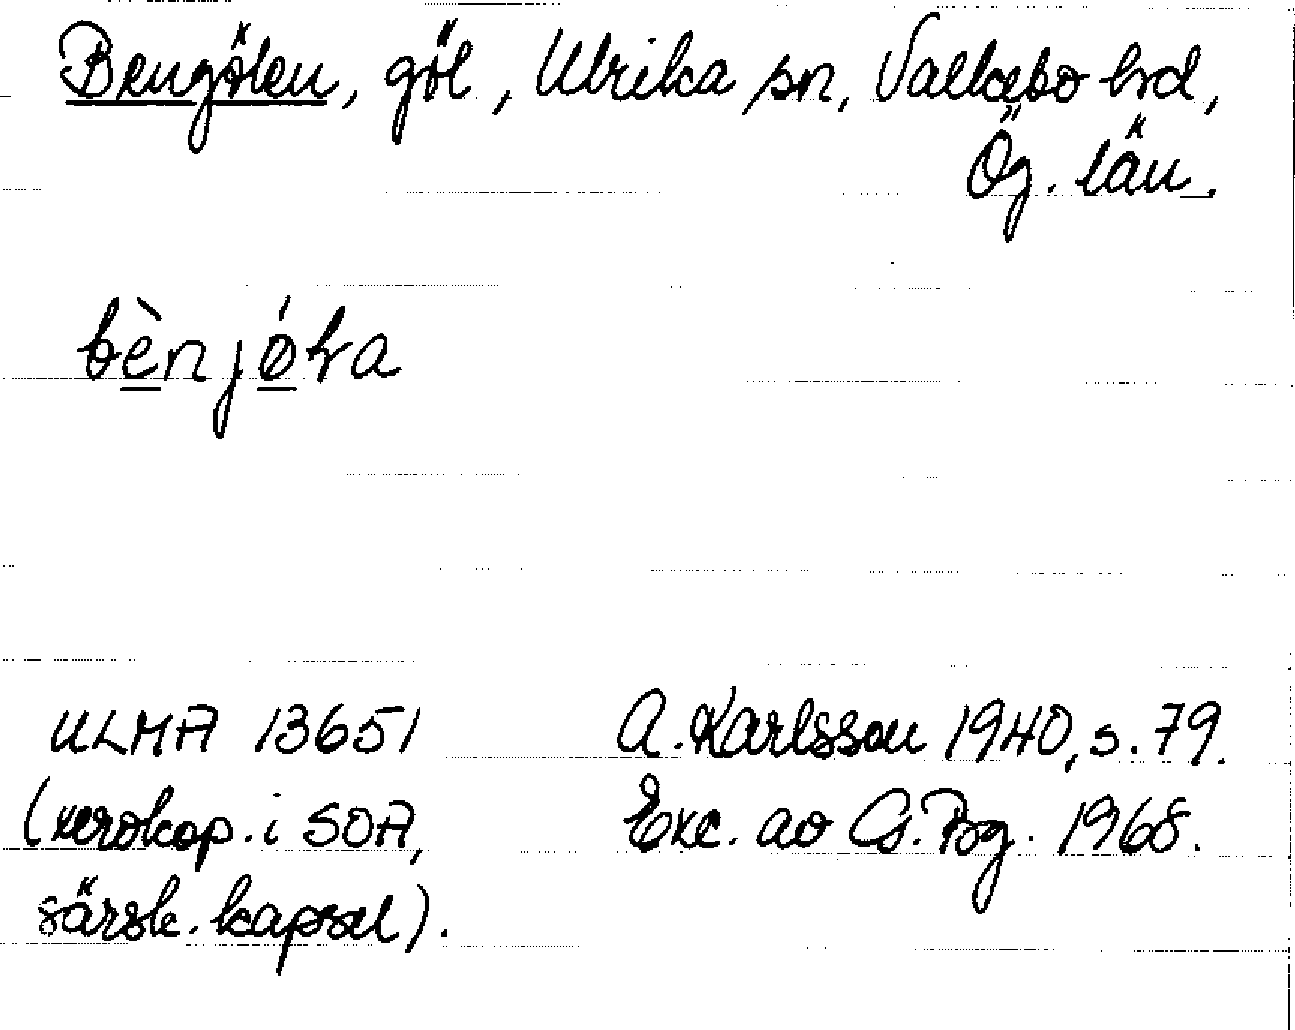 Bengölen, göl, Ulrika sn, Valkebo hrd,
Ög. län.
bènjǿla
ULMA 13651
A. Karlsson 1940, s. 79.
(xerokop. i SOA,
Exc. av G. Bg. 1968.
särsk. kapsel).